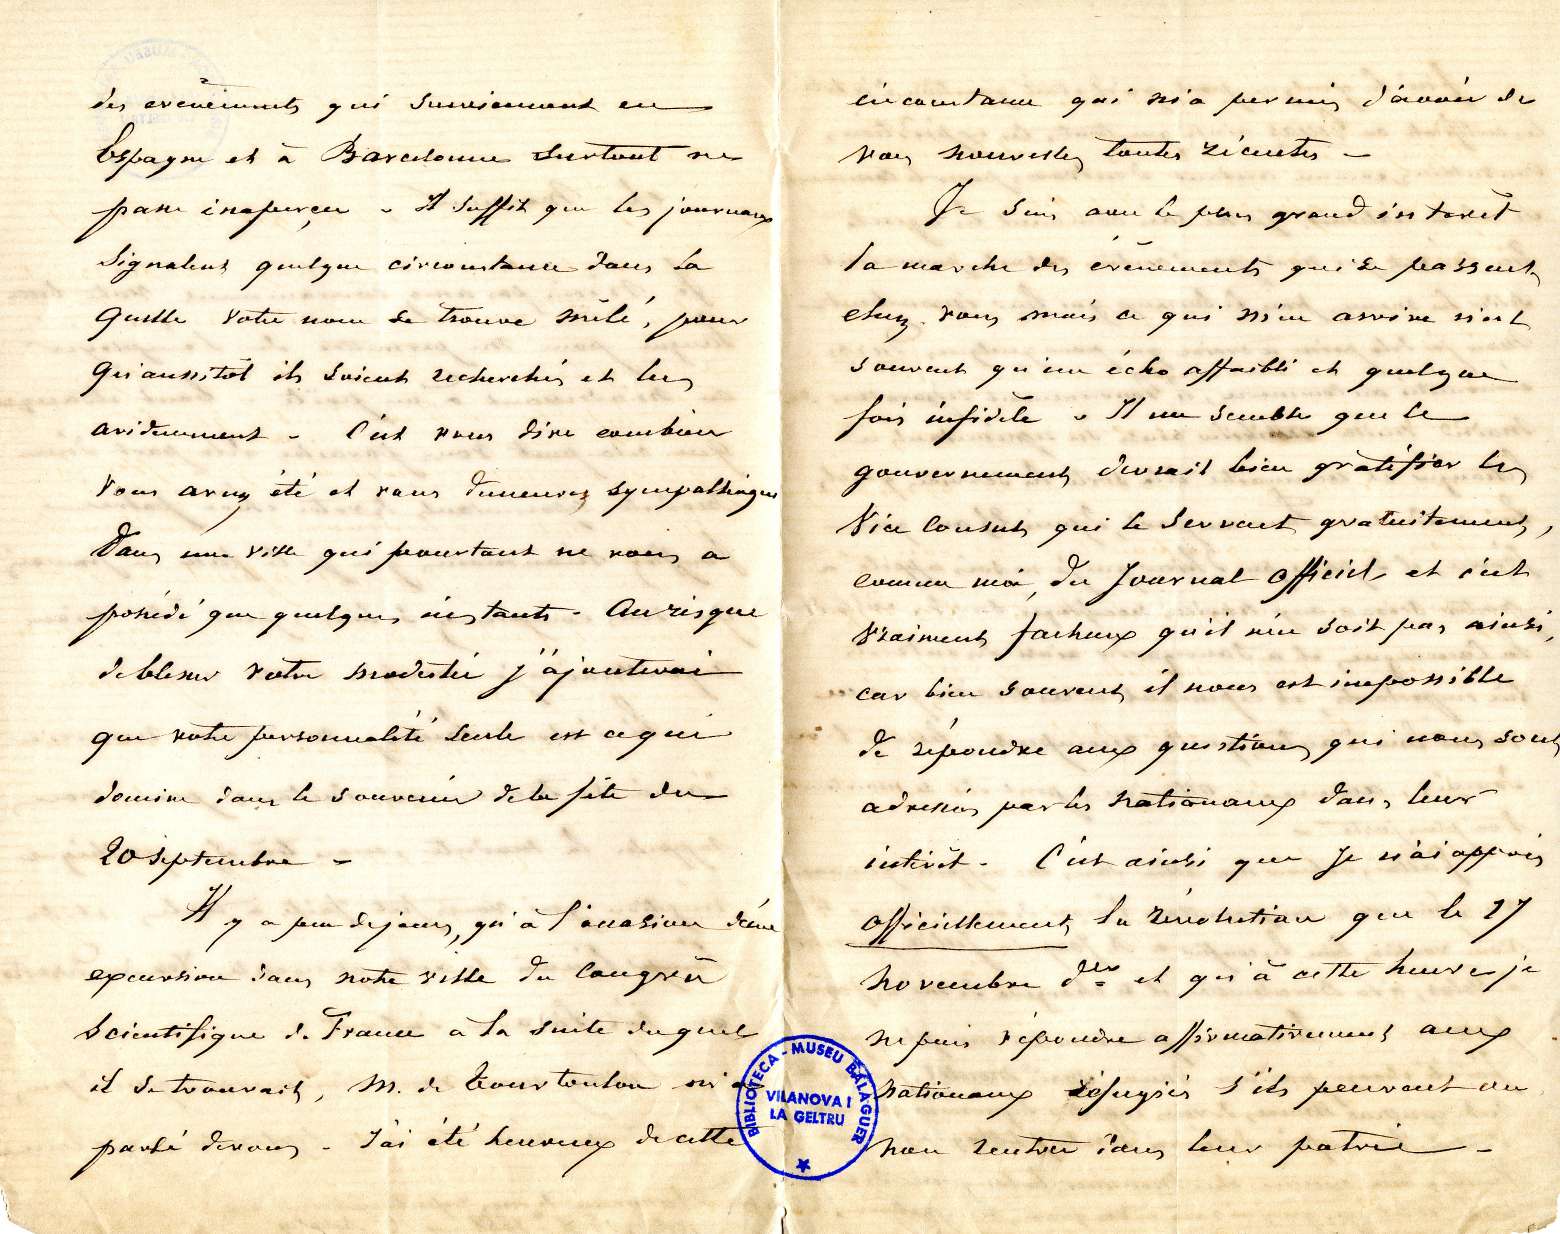 des evénéments qui surviennent en
Espagne et à Barcelonne surtout ne
passe inaperçu - Il suffit que les journaux
signalent quelque circonstance dans la
quelle votre nom se trouve mêlé, pour
qu'aussitôt ils soient recherchés et lus
avidemment - C'est vous dire combien
vous avez été et vous demeurez sympathique
dans une ville qui pourtant ne vous a
possédé que quelques instants - Au risque
de blesser votre modestie j'ajouterai
que votre personnalité seule est ce qui
domine dans le souvenir de la fête du
20 septembre -
Il y a peu de jours, qu'à l'occasion d'une
excursion dans notre ville du Congrès
Scientifique de France à la suite duquel
il se trouvait, M. de Tourtoulon m'a
parlé de vous - J'ai été heureux de cette
circonstance qui m'a permis d'avoir de
vos nouvelles toutes récentes -
Je suis avec le plus grand intérêt
la marche des événements qui se passent
chez vous mais ce qui m'en arrive n'est
souvent qu'un écho affaibli et quelque
fois infidèle - Il me semble que le
gouvernement devrait bien gratifier les
Vice Consuls qui le servent gratuitement,
comme moi, du Journal Officiel, et c'est
vraiment facheux qu'il n'en soit pas ainsi,
car bien souvent il nous est impossible
de répondre aux questions qui nous sont
adressées par les nationaux dans leur
intérêt - C'est ainsi que je n'ai appris
officiellement la révolution que le 27
novembre der et qu'à cette heure je
ne puis répondre affirmativement aux
nationaux réfugiés s'ils peuvent ou
non rentrer dans leur patrie -
BIBLIOTECA-MUSEU BALAGUER
VILANOVA I
LA GELTRU